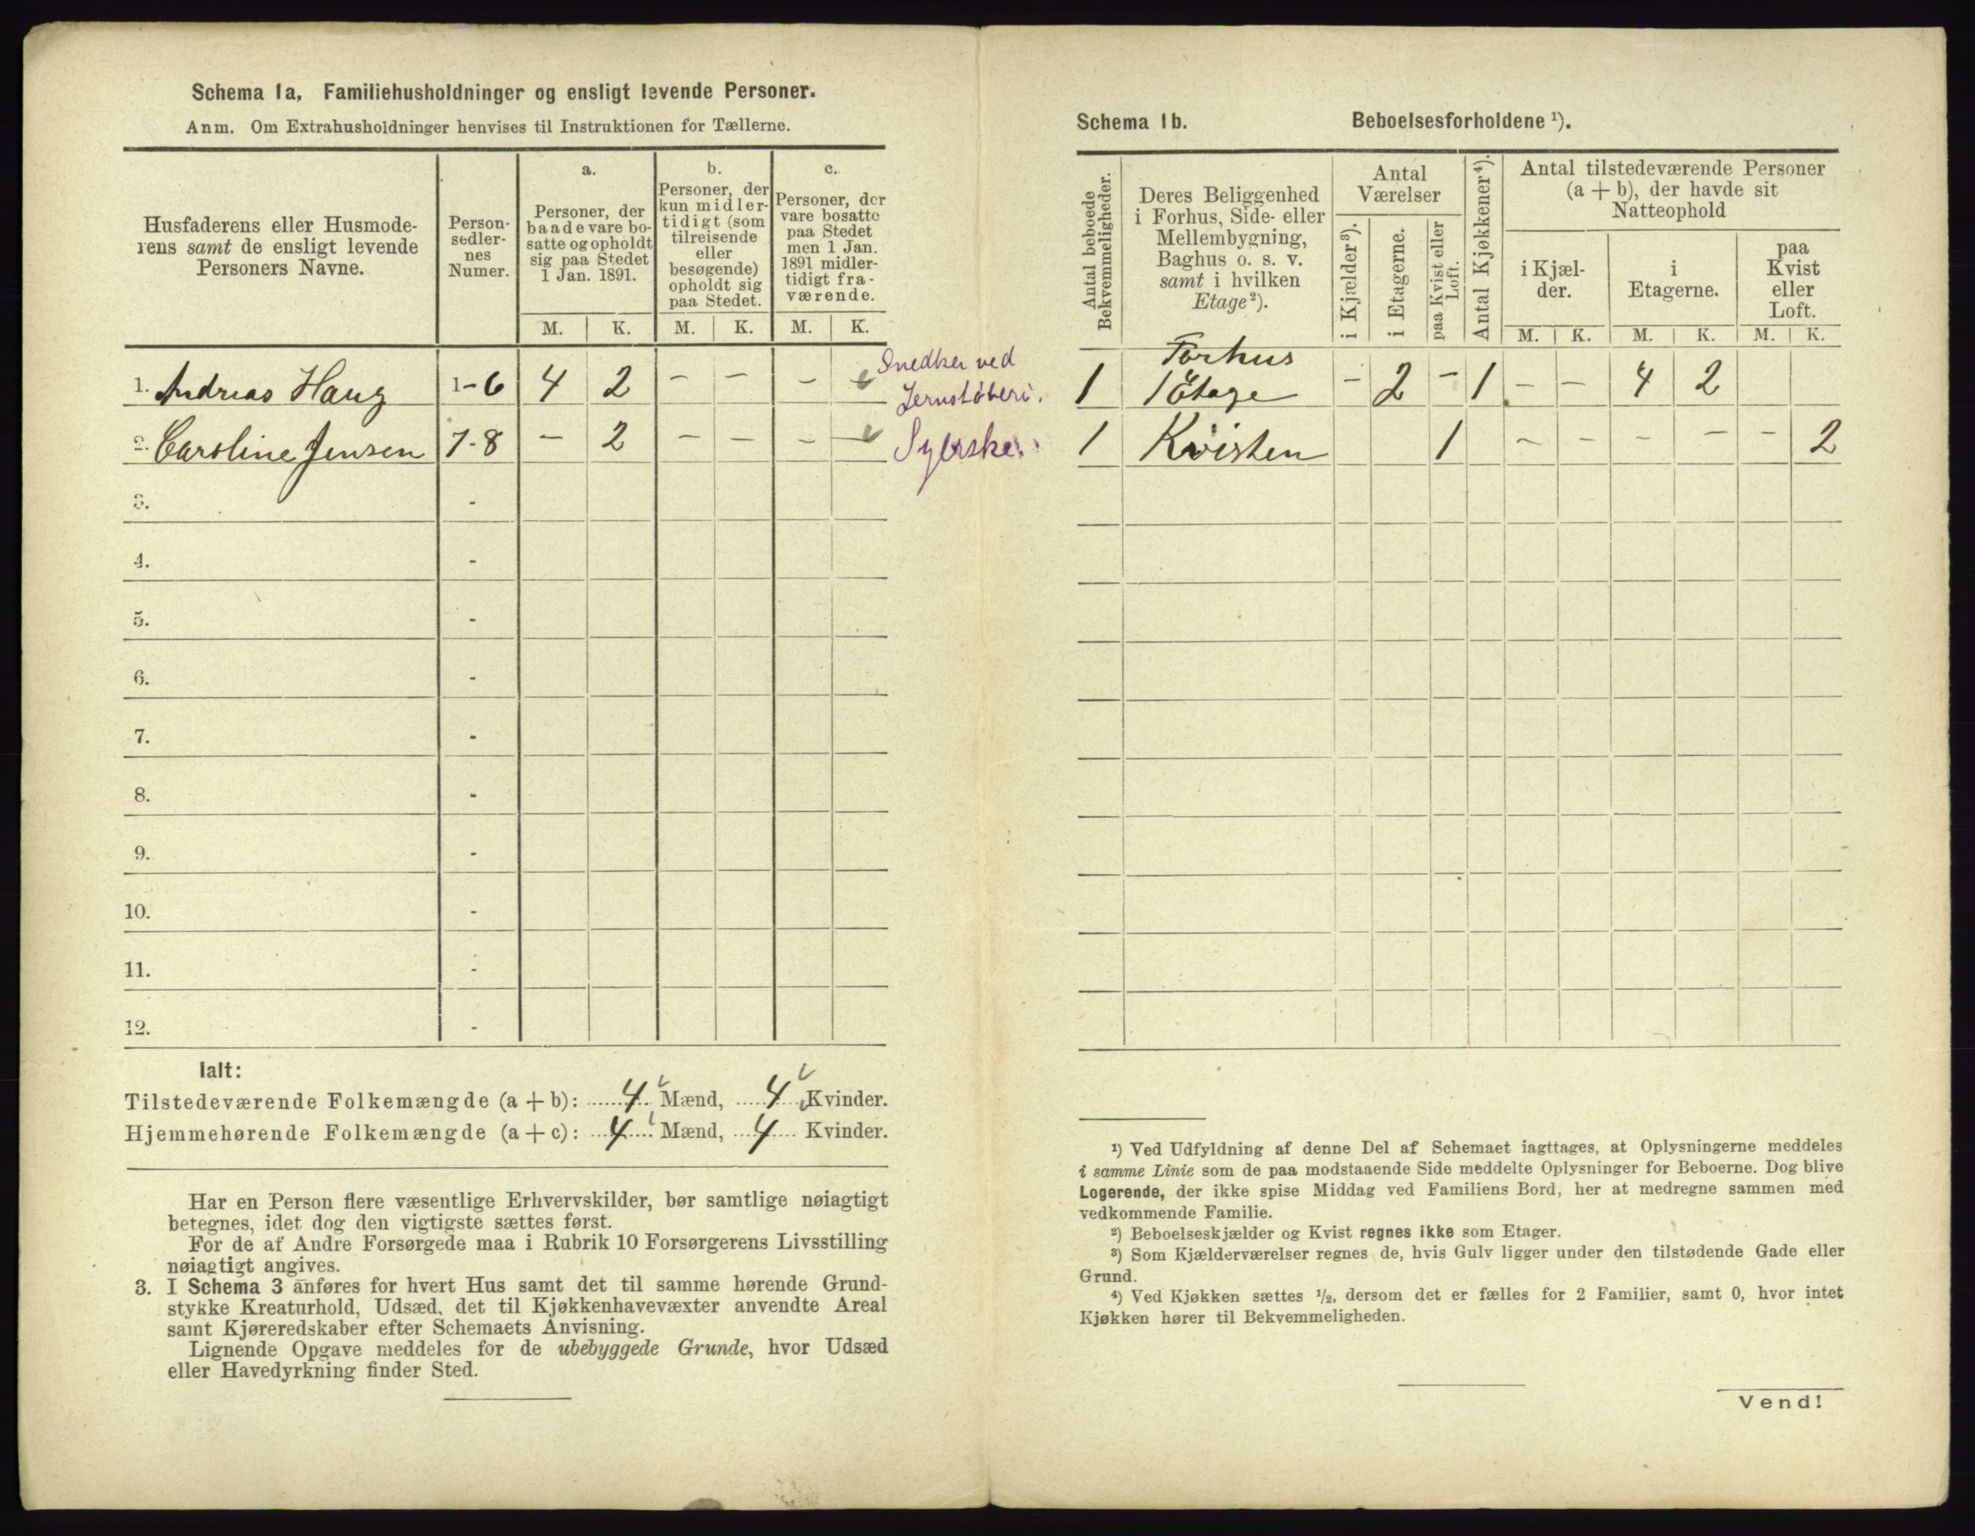 Schema 1a, Familiehusholdninger og ensligt levende Personer.
Anm. Om Extrahusholdninger henvises til Instruktionen for Tællerne.
Husfaderens eller Husmode-
rens samt de ensligt levende
Personers Navne.
Person-
sedler-
nes
Numer.
a.
Personer, der
baade vare bo-
satte og opholdt
sig paa Stedet
1 Jan. 1891.
b.
Personer, der
kun midler-
tidigt (som
tilreisende
eller
besøgende)
opholdt sig
paa Stedet.
c.
Personer, der
vare bosatte
paa Stedet
men 1 Jan.
1891 midler-
tidigt fra-
værende.
M. K. M. K. M. K.
1. Andreas Haug 1-6 4 2 - - - - Snedker ved
Jernstøberi.
2. Caroline Jensen 7-8 - 2 - - - - Syerske.
3. -
4. -
5. -
6. -
7. -
8. -
9. -
10. -
11. -
12. -
Ialt:
Tilstedeværende Folkemængde (a + b): 4 Mænd, 4 Kvinder.
Hjemmehørende Folkemængde (a + c): 4 Mænd, 4 Kvinder.
Har en Person flere væsentlige Erhvervskilder, bør samtlige nøiagtigt
betegnes, idet dog den vigtigste sættes først.
For de af Andre Forsørgede maa i Rubrik 10 Forsørgerens Livsstilling
nøiagtigt angives.
3. I Schema 3 anføres for hvert Hus samt det til samme hørende Grund-
stykke Kreaturhold, Udsæd, det til Kjøkkenhavevæxter anvendte Areal
samt Kjøreredskaber efter Schemaets Anvisning.
Lignende Opgave meddeles for de ubebyggede Grunde, hvor Udsæd
eller Havedyrkning finder Sted.
Schema 1b. Beboelsesforholdene ¹).
Antal beboede
Bekvemmeligheder.
Deres Beliggenhed
i Forhus, Side- eller
Mellembygning,
Baghus o. s. v.
samt i hvilken
Etage²).
Antal
Værelser
i Kjælder³).
i Etagerne.
paa Kvist eller
Loft.
Antal Kjøkkener⁴).
Antal tilstedeværende Personer
(a + b), der havde sit
Natteophold
i Kjæl-
der.
i
Etagerne.
paa
Kvist
eller
Loft.
M. K. M. K. M. K.
1 Forhus
1 Etage - 2 - 1 - - 4 2
1 Kvisten 1 - - - - - 2
¹) Ved Udfyldning af denne Del af Schemaet iagttages, at Oplysningerne meddeles
i samme Linie som de paa modstaaende Side meddelte Oplysninger for Beboerne. Dog blive
Logerende, der ikke spise Middag ved Familiens Bord, her at medregne sammen med
vedkommende Familie.
²) Beboelseskjælder og Kvist regnes ikke som Etager.
³) Som Kjælderværelser regnes de, hvis Gulv ligger under den tilstødende Gade eller
Grund.
⁴) Ved Kjøkken sættes ½, dersom det er fælles for 2 Familier, samt 0, hvor intet
Kjøkken hører til Bekvemmeligheden.
Vend!